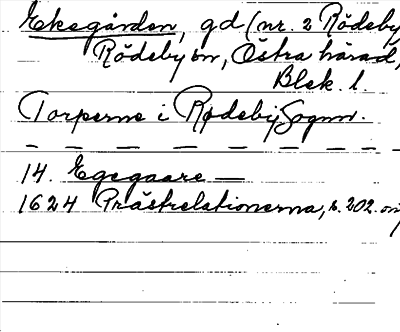 Ekegården, gd (nr. 2 Rödeby
Rödeby sn, Östra härad,
Blek. l.
Torperne i Rødeby Sogn.
14. Egegaare —
1624 Prästrelationerna, s. 202.